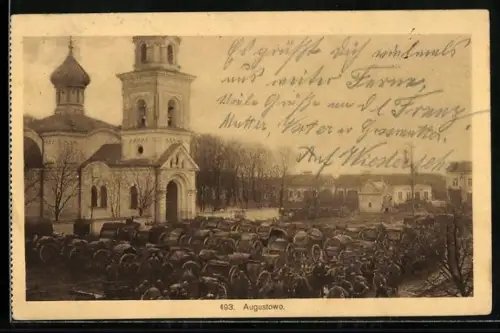 Es grüsst Dich vielmals
aus weiter Ferne,
Viele Grüsse an d. l. Franz
Mutter, Vater u Grossmutter.
Auf Wiedersehn
493. Augustowo.